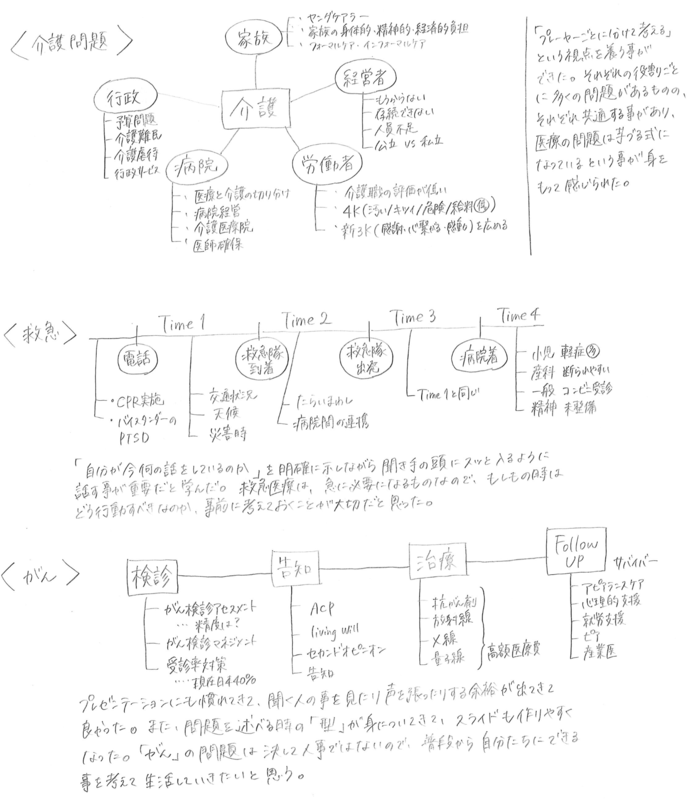 〈介護問題〉
家族
・ヤングケアラー
・家族の身体的・精神的・経済的負担
・フォーマルケア・インフォーマルケア
介護
行政
予算問題
介護難民
介護虐待
行政サービス
経営者
もうからない
存続できない
人員不足
公立 VS 私立
病院
・医療と介護の切り分け
・病院経営
・介護医療院
・医師確保
労働者
・介護職の評価が低い
・4K(汚い/キツイ/危険/給料低)
・新3K(感謝・心繋がる・感動)を広める
「プレーヤーごとに分けて考える」
という視点を養う事が
できた。それぞれの役割ごと
に多くの問題があるものの、
それぞれ共通する事があり、
医療の問題は芋づる式に
なっているという事が身を
もって感じられた。
〈救急〉
Time 1
Time 2
Time 3
Time 4
電話
救急隊
到着
救急隊
出発
病院着
・CPR実施
・バイスタンダーの
PTSD
交通状況
天候
災害時
たらいまわし
病院間の連携
Time1と同じ
小児 軽症多
産科 断られやすい
一般 コンビニ受診
精神 未整備
「自分が今何の話をしているのか」を明確に示しながら聞き手の頭にスッと入るように
話す事が重要だと学んだ。救急医療は、急に必要になるものなので、もしもの時は
どう行動すべきなのか、事前に考えておくことが大切だと思った。
〈がん〉
検診
告知
治療
Follow
UP
サバイバー
がん検診アセスメント
…精度は?
がん検診マネジメント
受診率対策
…現在日本40%
ACP
living will
セカンドオピニオン
告知
抗がん剤
放射線
X線
重粒線
高額医療費
アピアランスケア
心理的支援
就労支援
ピア
産業医
プレゼンテーションにも慣れてきて、聞く人の事を見たり声を張ったりする余裕が出てきて
良かった。また、問題を述べる時の「型」が身についてきて、スライドも作りやすく
なった。「がん」の問題は決して人事ではないので、普段から自分たちにできる
事を考えて生活していきたいと思う。